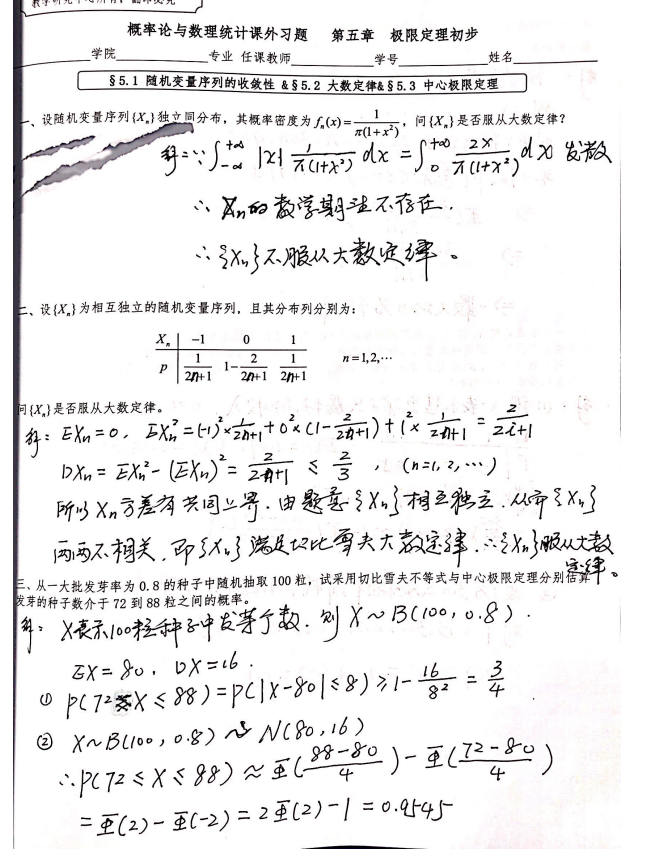 概率论与数理统计课外习题 第五章 极限定理初步
学院 专业 任课教师 学号 姓名
§5.1 随机变量序列的收敛性 &§5.2 大数定律&§5.3 中心极限定理
一、设随机变量序列{Xₙ}独立同分布，其概率密度为 fₙ(x)=1/(π(1+x²))，问{Xₙ}是否服从大数定律？
解：∵∫_{-∞}^{+∞} |x| 1/(π(1+x²)) dx = ∫_0^{+∞} 2x/(π(1+x²)) dx 发散
∴ Xₙ的数学期望不存在.
∴{Xₙ}不服从大数定律。
二、设{Xₙ}为相互独立的随机变量序列，且其分布列分别为：
Xₙ -1 0 1
p 1/(2n+1) 1-2/(2n+1) 1/(2n+1) n=1,2,⋯
问{Xₙ}是否服从大数定律。
解：EXₙ=0， EXₙ²=(-1)²×1/(2n+1)+0²×(1-2/(2n+1))+1²×1/(2n+1)=2/(2i+1)
DXₙ=EXₙ²-(EXₙ)²=2/(2n+1) ≤ 2/3 ， (n=1,2,⋯)
所以Xₙ方差有共同上界.由题意{Xₙ}相互独立.从而{Xₙ}
两两不相关.即{Xₙ}满足切比雪夫大数定律.∴{Xₙ}服从大数
定律。
三、从一大批发芽率为0.8的种子中随机抽取100粒，试采用切比雪夫不等式与中心极限定理分别估算
发芽的种子数介于72到88粒之间的概率。
解：X表示100粒种子中发芽个数.则X~B(100,0.8).
EX=80, DX=16.
① P(72≤X≤88)=P(|X-80|≤8)≥1-16/8²=3/4
② X~B(100,0.8) ~ N(80,16)
∴P(72≤X≤88)≈Φ((88-80)/4)-Φ((72-80)/4)
=Φ(2)-Φ(-2)=2Φ(2)-1=0.9545